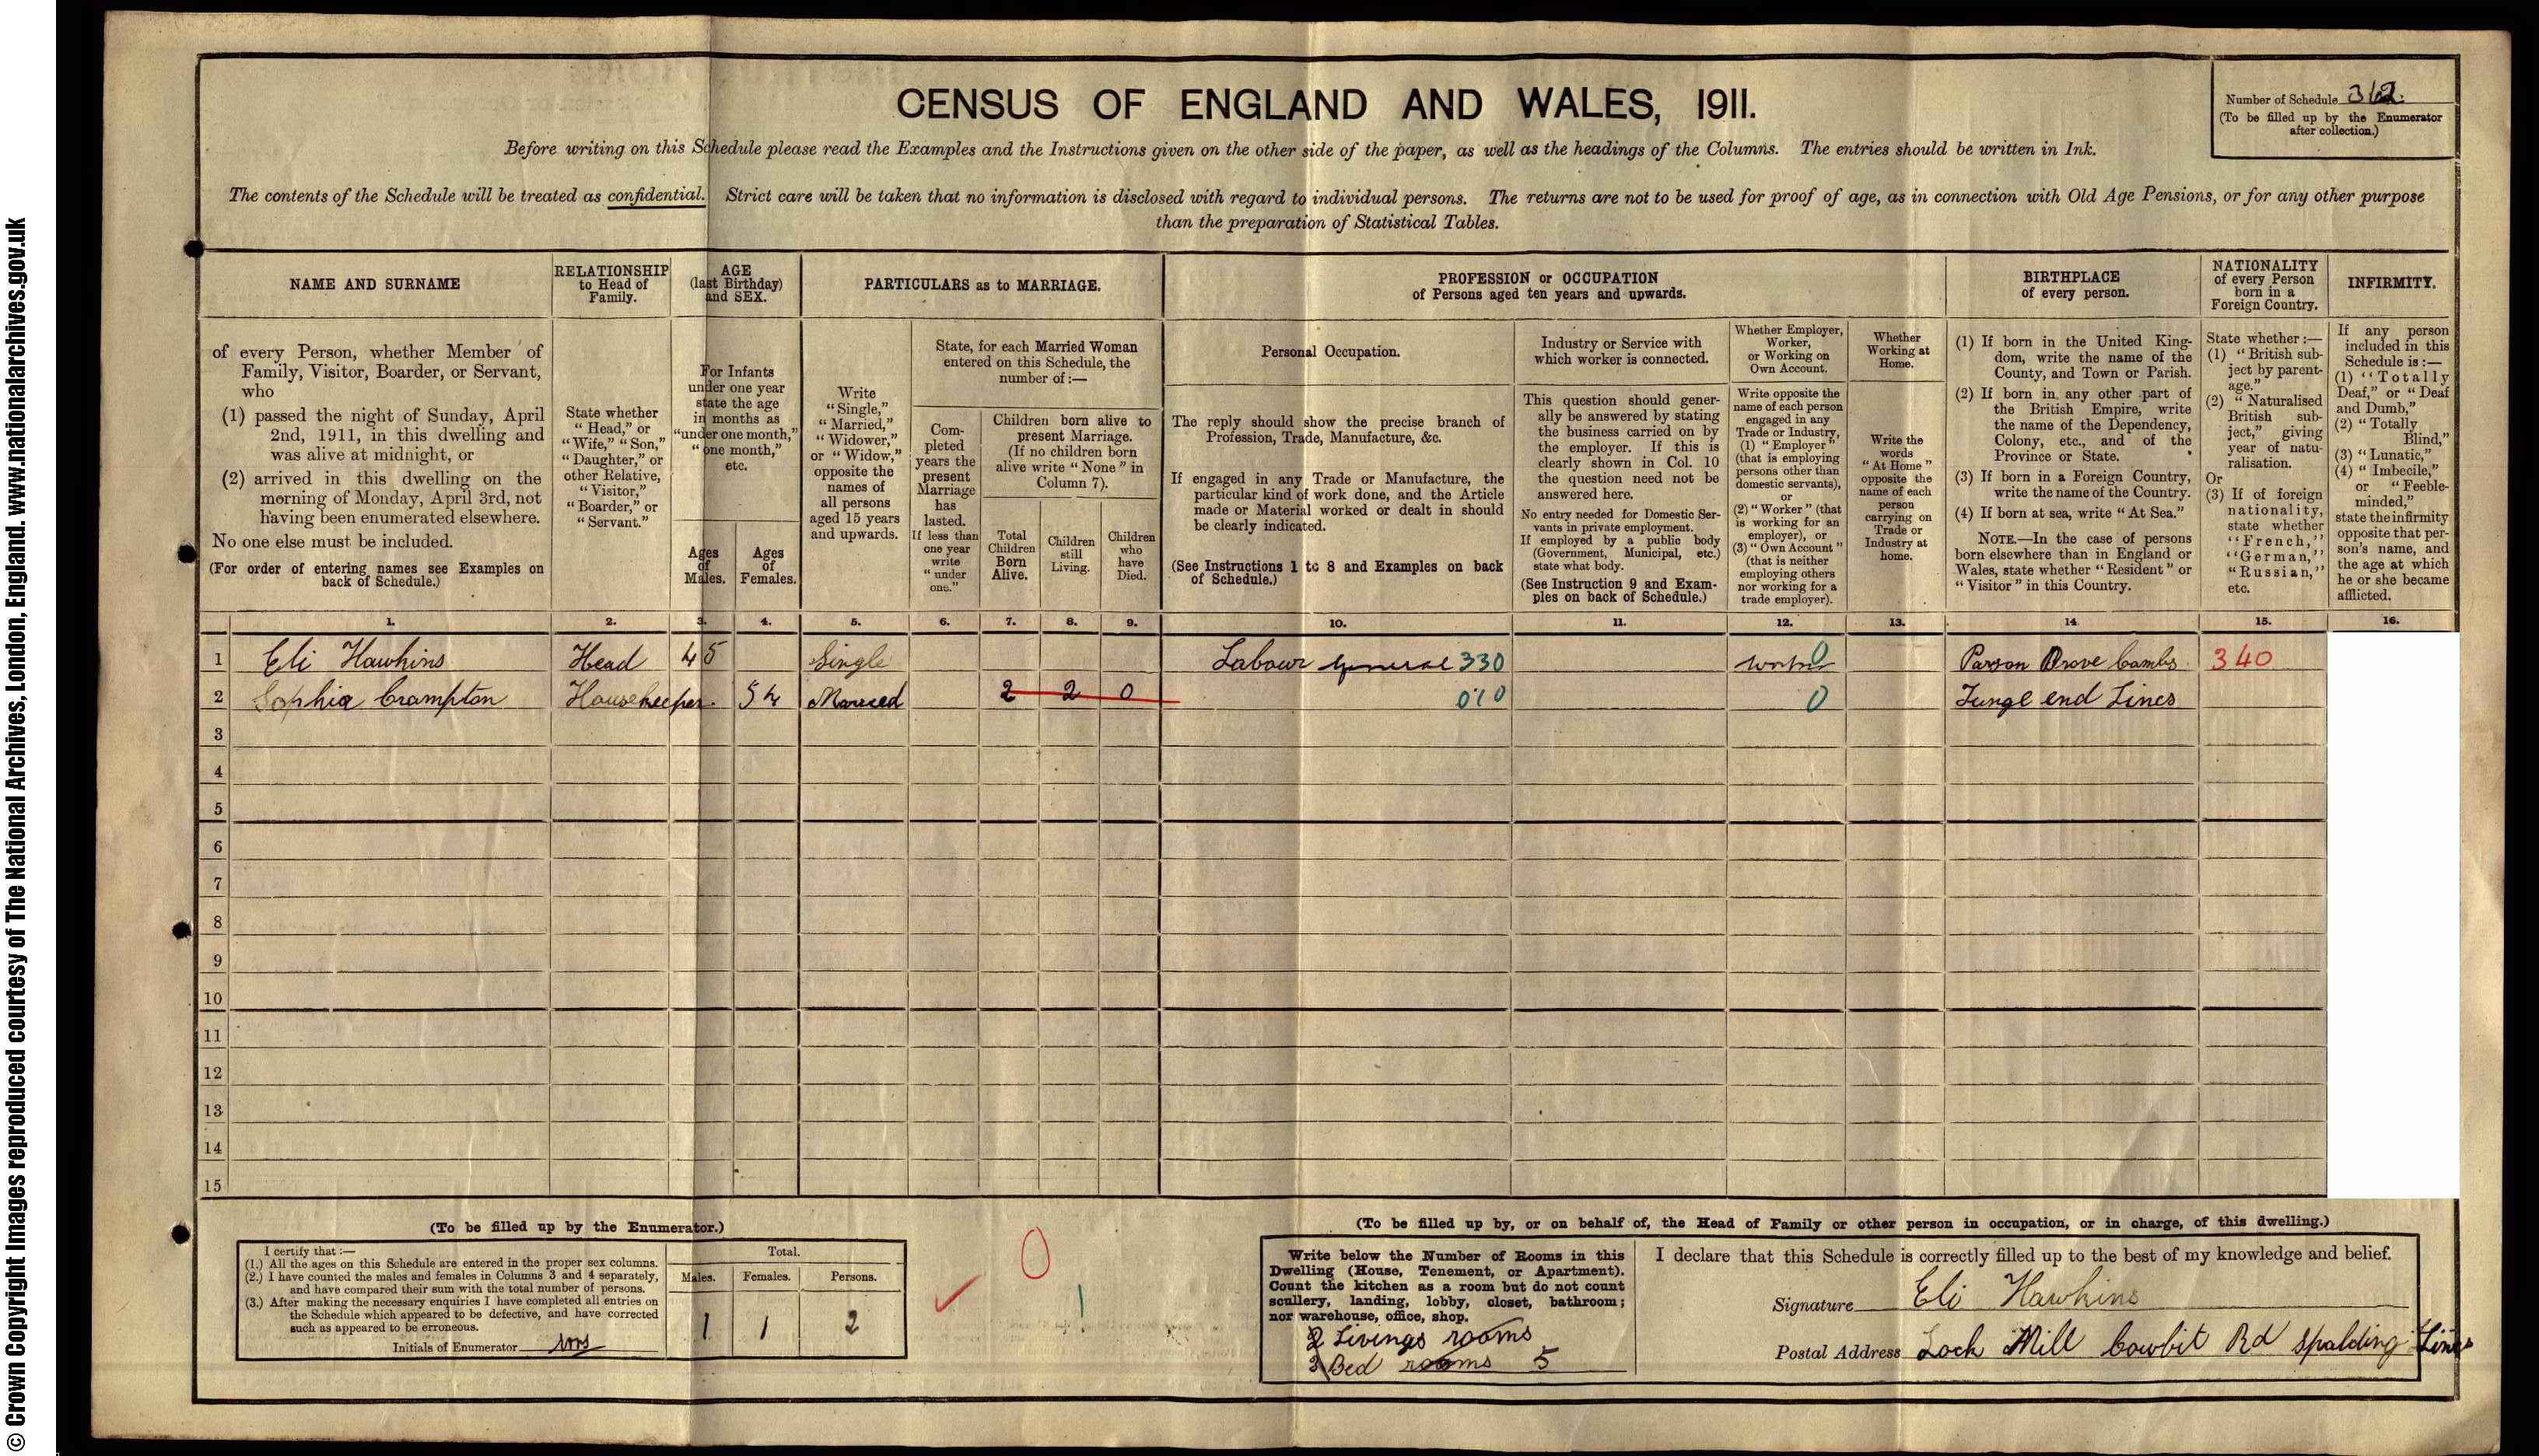 © Crown Copyright Images reproduced courtesy of The National Archives, London, England. www.nationalarchives.gov.uk
CENSUS OF ENGLAND AND WALES, 1911.
Number of Schedule
(To be filled up by the Enumerator
after collection.)
Before writing on this Schedule please read the Examples and the Instructions given on the other side of the paper, as well as the headings of the Columns. The entries should be written in Ink.
The contents of the Schedule will be treated as confidential. Strict care will be taken that no information is disclosed with regard to individual persons. The returns are not to be used for proof of age, as in connection with Old Age Pensions, or for any other purpose
than the preparation of Statistical Tables.
NAME AND SURNAME
of every Person, whether Member of
Family, Visitor, Boarder, or Servant,
who
(1) passed the night of Sunday, April
2nd, 1911, in this dwelling and
was alive at midnight, or
(2) arrived in this dwelling on the
morning of Monday, April 3rd, not
having been enumerated elsewhere.
No one else must be included.
(For order of entering names see Examples on
back of Schedule.)
RELATIONSHIP
to Head of
Family.
State whether
"Head," or
"Wife," "Son,"
"Daughter," or
other Relative,
"Visitor,"
"Boarder," or
"Servant."
AGE
(last Birthday)
and SEX.
For Infants
under one year
state the age
in months as
"under one month,"
"one month,"
etc.
Ages
of
Males.
Ages
of
Females.
PARTICULARS as to MARRIAGE.
Write
"Single,"
"Married,"
"Widower,"
or "Widow,"
opposite the
names of
all persons
aged 15 years
and upwards.
State, for each Married Woman
entered on this Schedule, the
number of :—
Com-
pleted
years the
present
Marriage
has
lasted.
If less than
one year
write
"under
one."
Children born alive to
present Marriage.
(If no children born
alive write "None" in
Column 7).
Total
Children
Born
Alive.
Children
still
Living.
Children
who
have
Died.
PROFESSION or OCCUPATION
of Persons aged ten years and upwards.
Personal Occupation.
The reply should show the precise branch of
Profession, Trade, Manufacture, &c.
If engaged in any Trade or Manufacture, the
particular kind of work done, and the Article
made or Material worked or dealt in should
be clearly indicated.
(See Instructions 1 to 8 and Examples on back
of Schedule.)
Industry or Service with
which worker is connected.
This question should gener-
ally be answered by stating
the business carried on by
the employer. If this is
clearly shown in Col. 10
the question need not be
answered here.
No entry needed for Domestic Ser-
vants in private employment.
If employed by a public body
(Government, Municipal, etc.)
state what body.
(See Instruction 9 and Exam-
ples on back of Schedule.)
Whether Employer,
Worker,
or Working on
Own Account.
Write opposite the
name of each person
engaged in any
Trade or Industry,
(1) "Employer"
(that is employing
persons other than
domestic servants),
or
(2) "Worker" (that
is working for an
employer), or
(3) "Own Account"
(that is neither
employing others
nor working for a
trade employer).
Whether
Working at
Home.
Write the
words
"At Home"
opposite the
name of each
person
carrying on
Trade or
Industry at
home.
BIRTHPLACE
of every person.
(1) If born in the United King-
dom, write the name of the
County, and Town or Parish.
(2) If born in any other part of
the British Empire, write
the name of the Dependency,
Colony, etc., and of the
Province or State.
(3) If born in a Foreign Country,
write the name of the Country.
(4) If born at sea, write "At Sea."
NOTE.—In the case of persons
born elsewhere than in England or
Wales, state whether "Resident" or
"Visitor" in this Country.
NATIONALITY
of every Person
born in a
Foreign Country.
State whether :—
(1) "British sub-
ject by parent-
age."
(2) "Naturalised
British sub-
ject," giving
year of natu-
ralisation.
Or
(3) If of foreign
nationality,
state whether
"French,"
"German,"
"Russian,"
etc.
INFIRMITY.
If any person
included in this
Schedule is :—
(1) "Totally
Deaf," or "Deaf
and Dumb,"
(2) "Totally
Blind,"
(3) "Lunatic,"
(4) "Imbecile,"
or "Feeble-
minded,"
state the infirmity
opposite that per-
son's name, and
the age at which
he or she became
afflicted.
1. 2. 3. 4. 5. 6. 7. 8. 9. 10. 11. 12. 13. 14 15. 16.
1 Eli Hawkins Head 45 Single Labour General 330 Worker 0 Parson Drove Cambs. 340
2 Sophia Crampton Housekeeper. 54 Married 2 2 0 010 0 end Lincs
3
4
5
6
7
8
9
10
11
12
13
14
15
(To be filled up by the Enumerator.)
I certify that :—
(1.) All the ages on this Schedule are entered in the proper sex columns.
(2.) I have counted the males and females in Columns 3 and 4 separately,
and have compared their sum with the total number of persons.
(3.) After making the necessary enquiries I have completed all entries on
the Schedule which appeared to be defective, and have corrected
such as appeared to be erroneous.
Initials of Enumerator
Total.
Males. Females. Persons.
1 1 2
0
1
(To be filled up by, or on behalf of, the Head of Family or other person in occupation, or in charge, of this dwelling.)
Write below the Number of Rooms in this
Dwelling (House, Tenement, or Apartment).
Count the kitchen as a room but do not count
scullery, landing, lobby, closet, bathroom;
nor warehouse, office, shop.
2 Livings rooms
3 Bed rooms 5
I declare that this Schedule is correctly filled up to the best of my knowledge and belief.
Signature Eli Hawkins
Postal Address Lock Mill Cowbit Rd Spalding Lincs